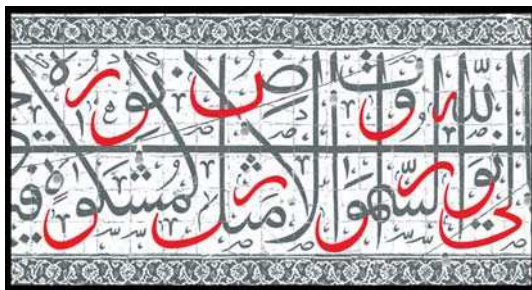 الله نور السموات والارض مثل نوره كمشكوة